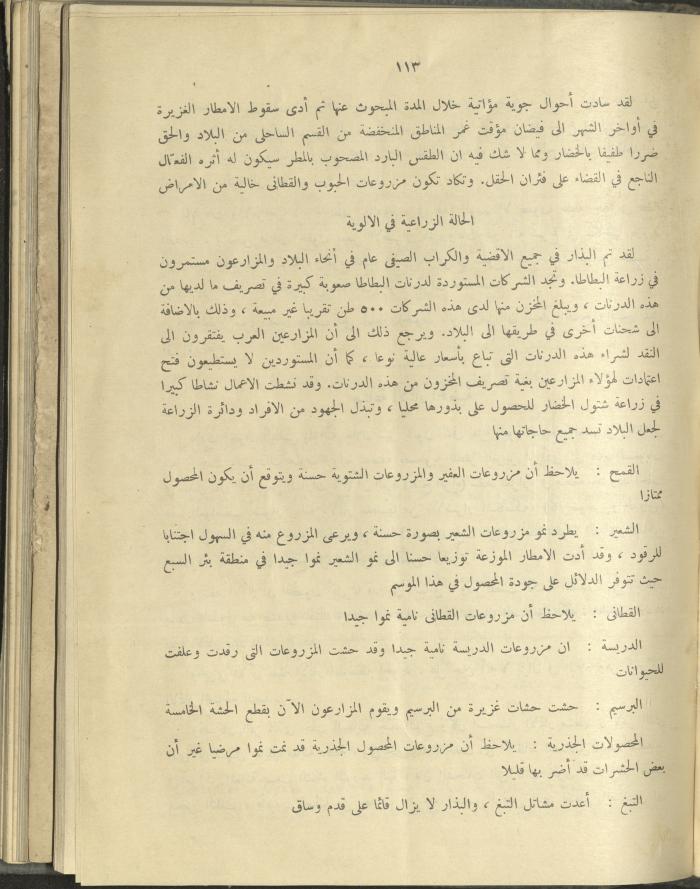 ١١٣
لقد سادت أحوال جوية مؤاتية خلال المدة المبحوث عنها ثم أدى سقوط الامطار الغزيرة
في أواخر الشهر الى فيضان مؤقت غمر المناطق المنخفضة من القسم الساحلى من البلاد والحق
ضررا طفيفا بالخضار ومما لا شك فيه ان الطقس البارد المصحوب بالمطر سيكون له أثره الفعّال
الناجع في القضاء على فئران الحقل. وتكاد تكون مزروعات الحبوب والقطانى خالية من الامراض
الحالة الزراعية في الالوية
لقد تم البذار في جميع الاقضية والكراب الصيفى عام في أنحاء البلاد والمزارعون مستمرون
في زراعة البطاطا. وتجد الشركات المستوردة لدرنات البطاطا صعوبة كبيرة في تصريف ما لديها من
هذه الدرنات ، ويبلغ المخزن منها لدى هذه الشركات ٥٠٠ طن تقريبا غير مبيعة ، وذلك بالاضافة
الى شحنات أخرى في طريقها الى البلاد. ويرجع ذلك الى أن المزارعين العرب يفتقرون الى
النقد لشراء هذه الدرنات التى تباع بأسعار عالية نوعا ، كما أن المستوردين لا يستطيعون فتح
اعتمادات لهؤلاء المزارعين بغية تصريف المخزون من هذه الدرنات. وقد نشطت الاعمال نشاطا كبيرا
في زراعة شتول الخضار للحصول على بذورها محليا ، وتبذل الجهود من الافراد ودائرة الزراعة
لجعل البلاد تسد جميع حاجاتها منها
القمح : يلاحظ أن مزروعات العفير والمزروعات الشتوية حسنة ويتوقع أن يكون المحصول
ممتازا
الشعير : يطرد نمو مزروعات الشعير بصورة حسنة ، ويرعى المزروع منه في السهول اجتنابا
للرقود ، وقد أدت الامطار الموزعة توزيعا حسنا الى نمو الشعير نموا جيدا في منطقة بئر السبع
حيث تتوفر الدلائل على جودة المحصول في هذا الموسم
القطانى : يلاحظ أن مزروعات القطانى نامية نموا جيدا
الدريسة : ان مزروعات الدريسة نامية جيدا وقد حشت المزروعات التى رقدت وعلفت
للحيوانات
البرسيم : حشت حشات غزيرة من البرسيم ويقوم المزارعون الآن بقطع الحشة الخامسة
المحصولات الجذرية : يلاحظ أن مزروعات المحصول الجذرية قد نمت نموا مرضيا غير أن
بعض الحشرات قد أضر بها قليلا
التبغ : أعدت مشاتل التبغ ، والبذار لا يزال قائما على قدم وساق